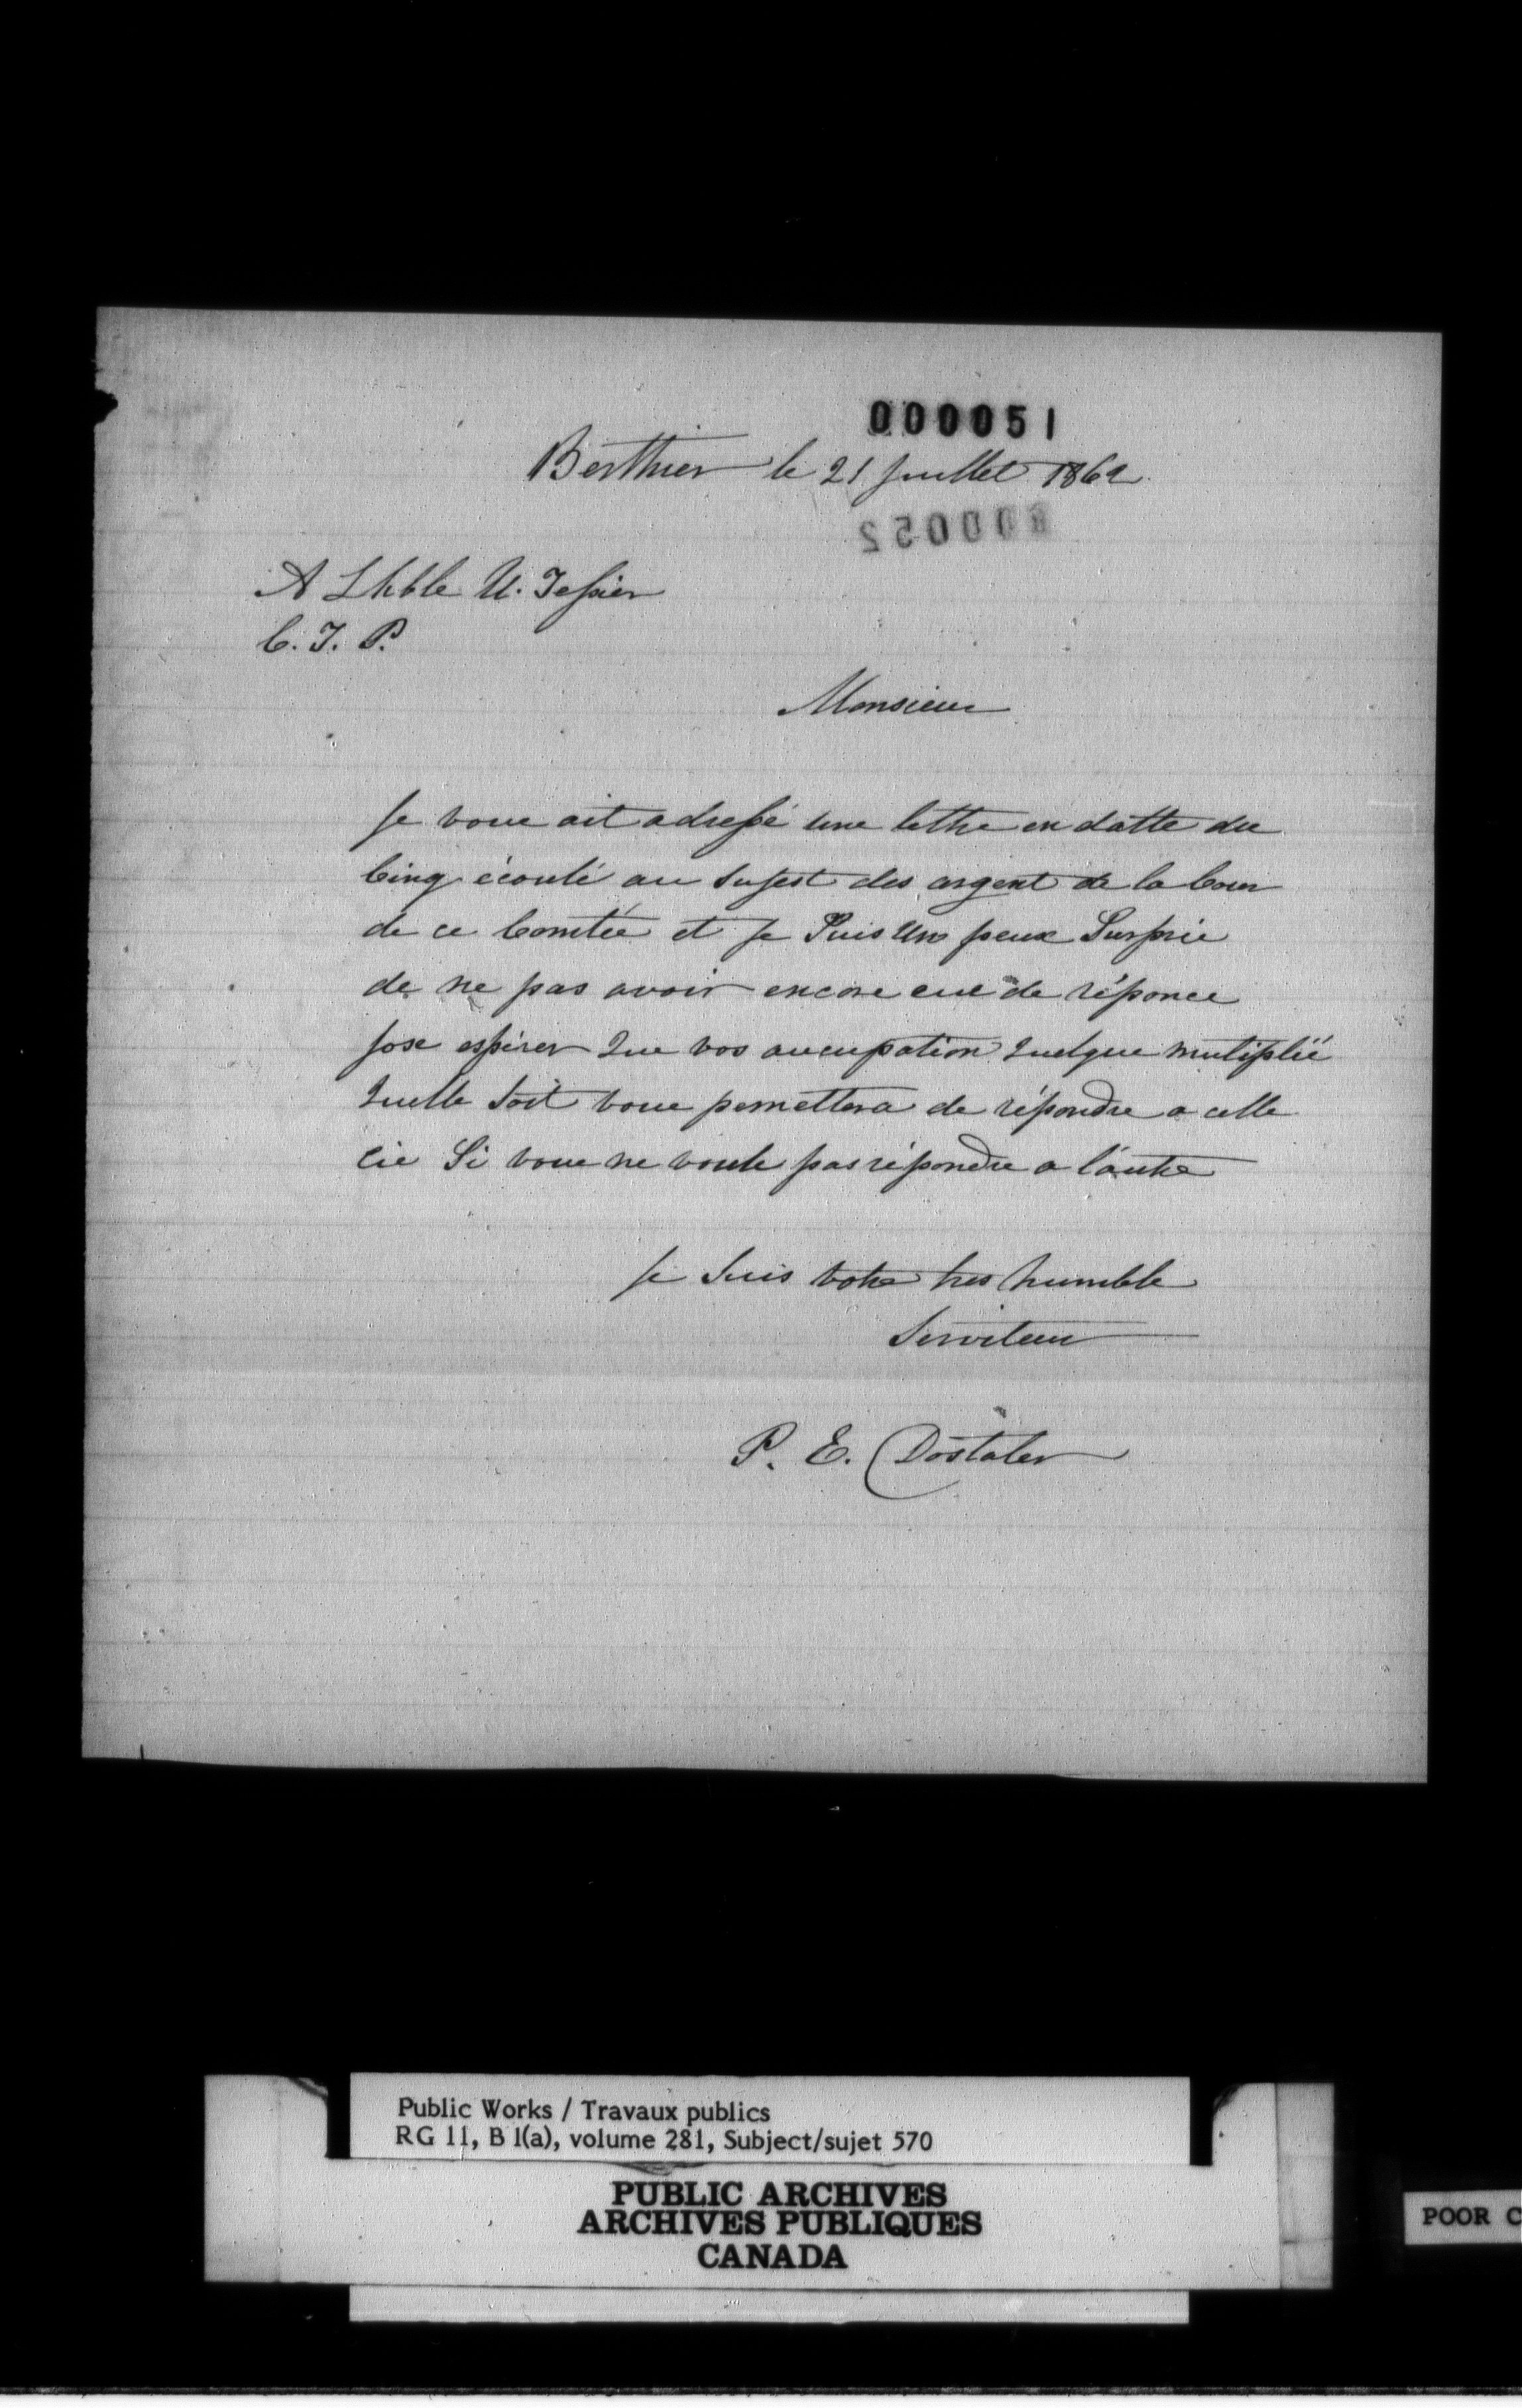 000051
Berthier le 21 Juillet 1862
000052
A Lhble U. Tessier
C. T. P.
Monsieur
Je vous ait adressé une lettre en datte du
Cinq écoulé au Sujest des argent de la Cour
de ce Comtée et Je Suis Un peux Surpris
de ne pas avoir encore eue de réponce
Jose espérer Que vos aucupation Quelque mutiplié
Quelle Soit vous permettera de répondre a celle
cie Si vous ne voule pas répondre a l'autre
Je Suis votre tres humble
Serviteur
P. E. Dostaler
Public Works / Travaux publics
RG 11, B 1(a), volume 281, Subject/sujet 570
PUBLIC ARCHIVES
ARCHIVES PUBLIQUES
CANADA
POOR C